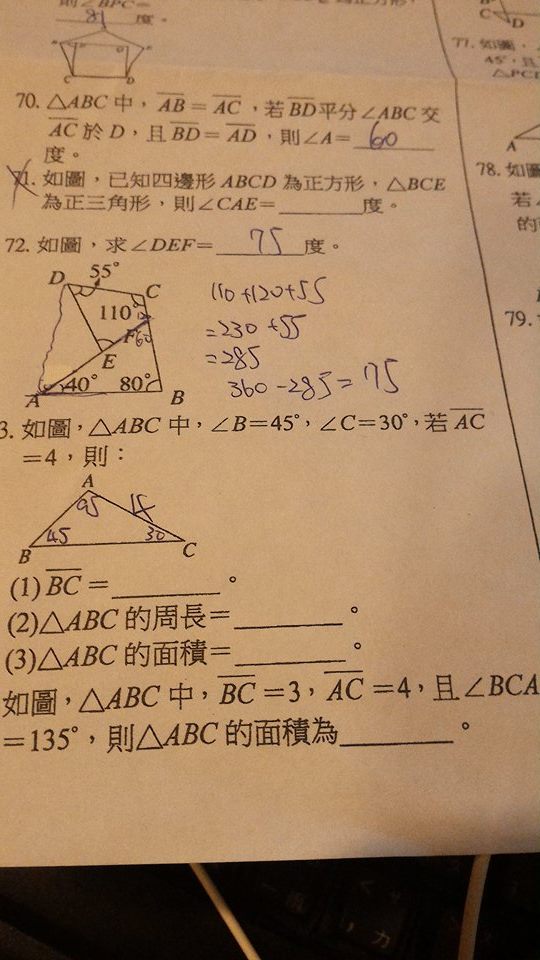 則∠BPC=
81 度。
C D
70. △ABC 中，AB = AC，若BD平分∠ABC 交
AC 於 D，且BD = AD，則∠A= 60
度。
71. 如圖，已知四邊形 ABCD 為正方形，△BCE
為正三角形，則∠CAE=______度。
72. 如圖，求∠DEF= 75 度。
D 55° C
110°
F 60
E
A 40° 80° B
110+120+55
=230+55
=285
360-285=75
3. 如圖，△ABC 中，∠B=45°，∠C=30°，若AC
=4，則：
A
95
45 30
B C
(1) BC =________。
(2)△ABC 的周長=________。
(3)△ABC 的面積=________。
如圖，△ABC 中，BC =3，AC =4，且∠BCA
=135°，則△ABC 的面積為________。
C D
77. 如圖，
45°，且
A
78. 如圖
若∠
的
79.